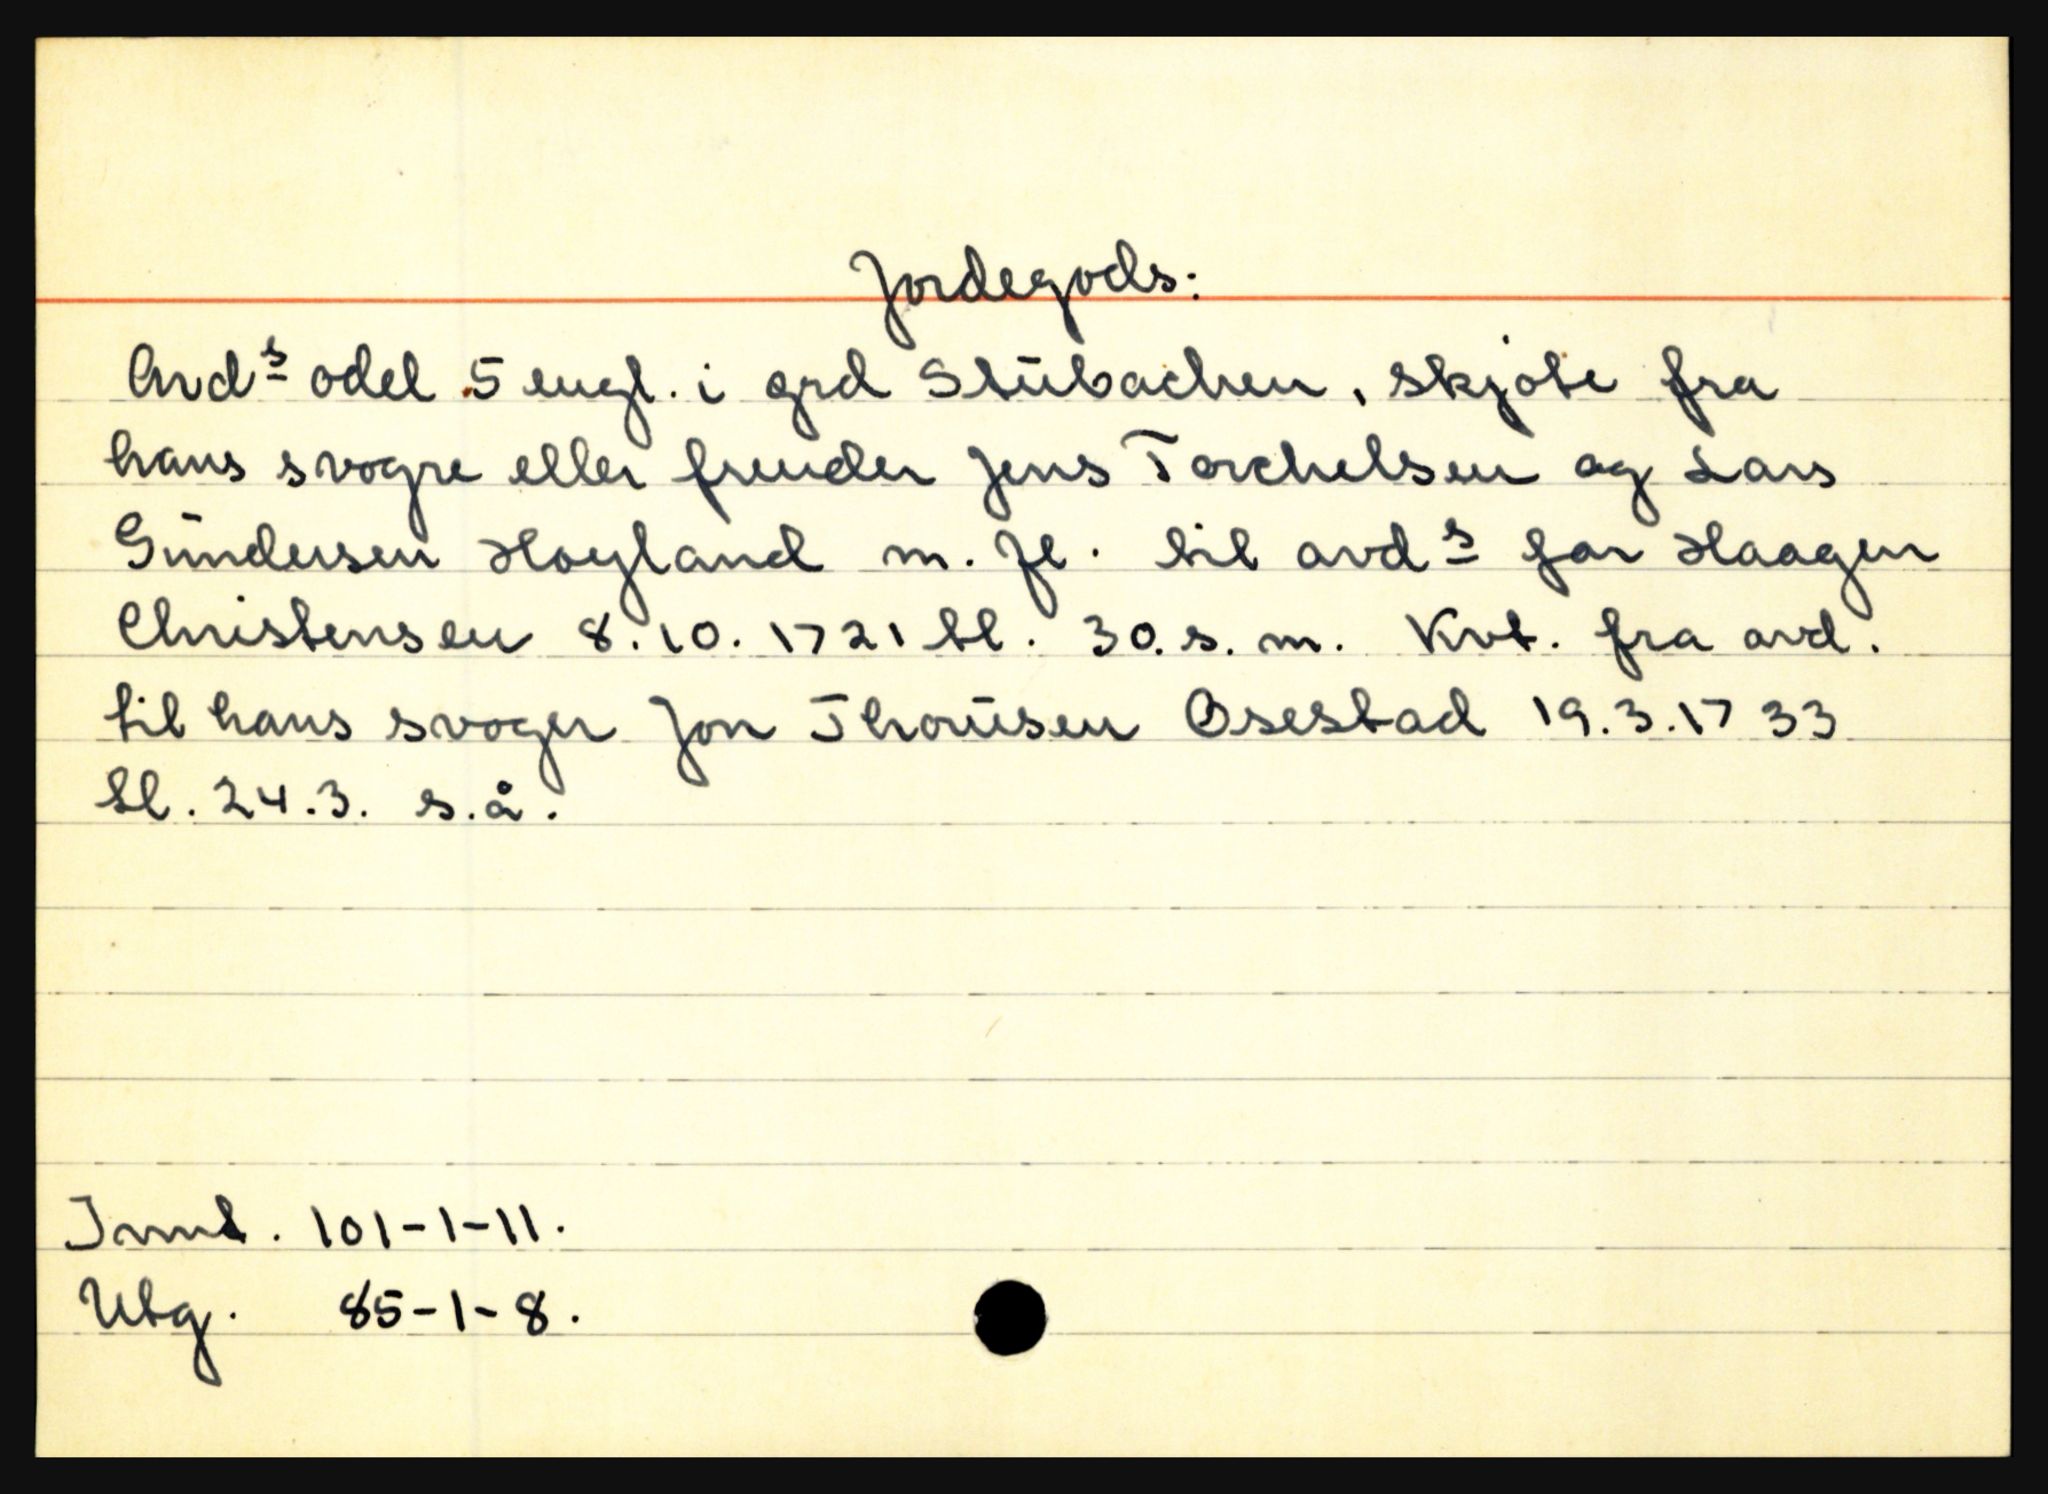 Jordegods:
Avds odel 5 engl. i grd Stübachen, skjøte fra
hans svogre eller frender Jens Torchelsen og Lars
Gündersen Høyland m. fl. til avds far Haagen
Christensen 8.10.1721 tl. 30.s.m. Kvt. fra avd.
til hans svoger Jon Thorüsen Osestad 19.3.1733
tl. 24.3. s.å.
Innt. 101-1-11.
Utg. 85-1-8.